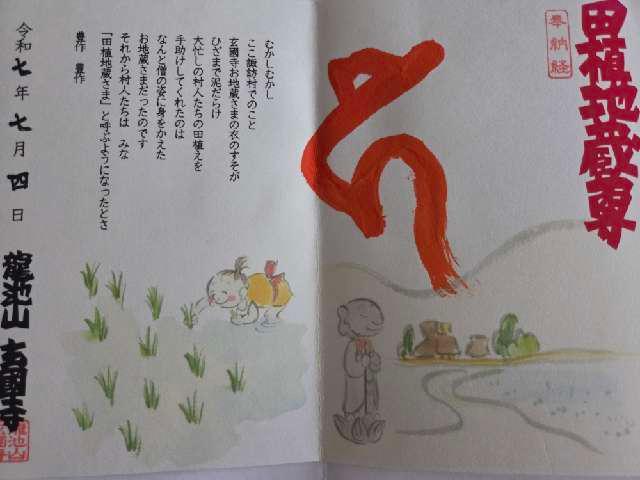 奉納経
田植地蔵尊
むかしむかし
ここ諏訪村でのこと
玄國寺お地蔵さまの衣のすそが
ひざまで泥だらけ
大忙しの村人たちの田植えを
手助けしてくれたのは
なんと僧の姿に身をかえた
お地蔵さまだったのです
それから村人たちは みな
「田植地蔵さま」と呼ぶようになったとさ
豊作 豊作
令和七年七月四日
龍池山 玄國寺